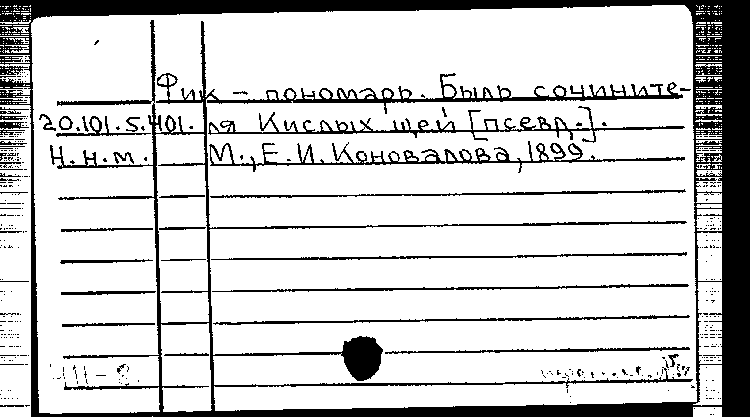 Фик - пономарь. Быль сочините-
20.101.5.401. ля Кислых щей [псевд.].
Н.н.м. М., Е.И. Коновалова, 1899.
ЧШ-8.